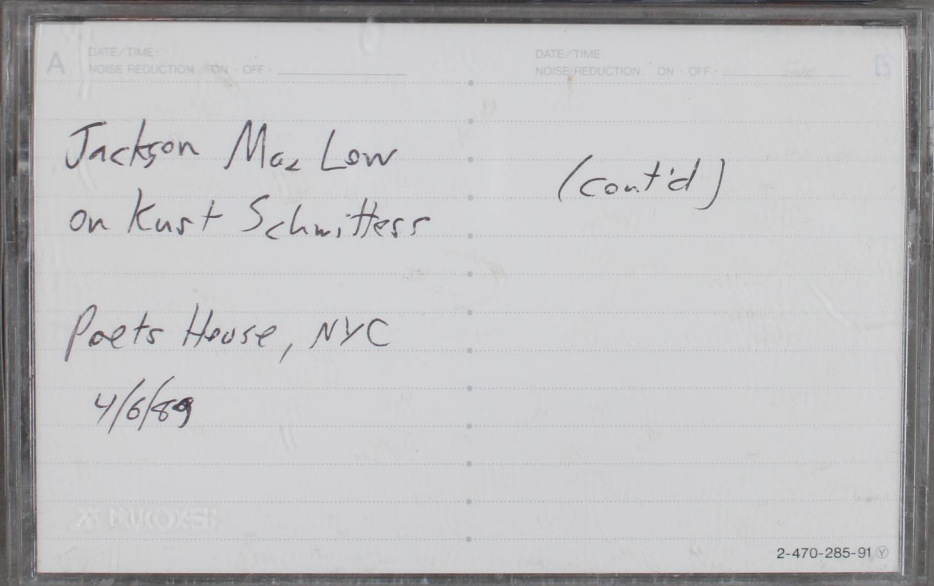 A
DATE/TIME:
NOISE REDUCTION ON - OFF -
Jackson Mac Low
on Kurt Schwitters
Poets House, NYC
4/6/89
B
DATE/TIME
NOISE REDUCTION ON - OFF -
(cont'd)
2-470-285-91 Y